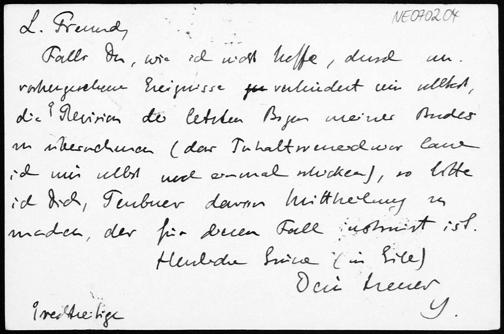 NE070204
L. Freund,
Falls Du, wie ich nicht hoffe, durch un-
vorhergesehene Ereignisse verhindert sein solltest,
die Revision der letzten Bogen meines Buches
zu übernehmen (das Inhaltsverzeichnis lasse
ich mir selbst noch einmal schicken), so bitte
ich Dich, Teubner davon Mittheilung zu
machen, der für diesen Fall instruirt ist.
Herzliche Grüsse (in Eile)
Dein treuer